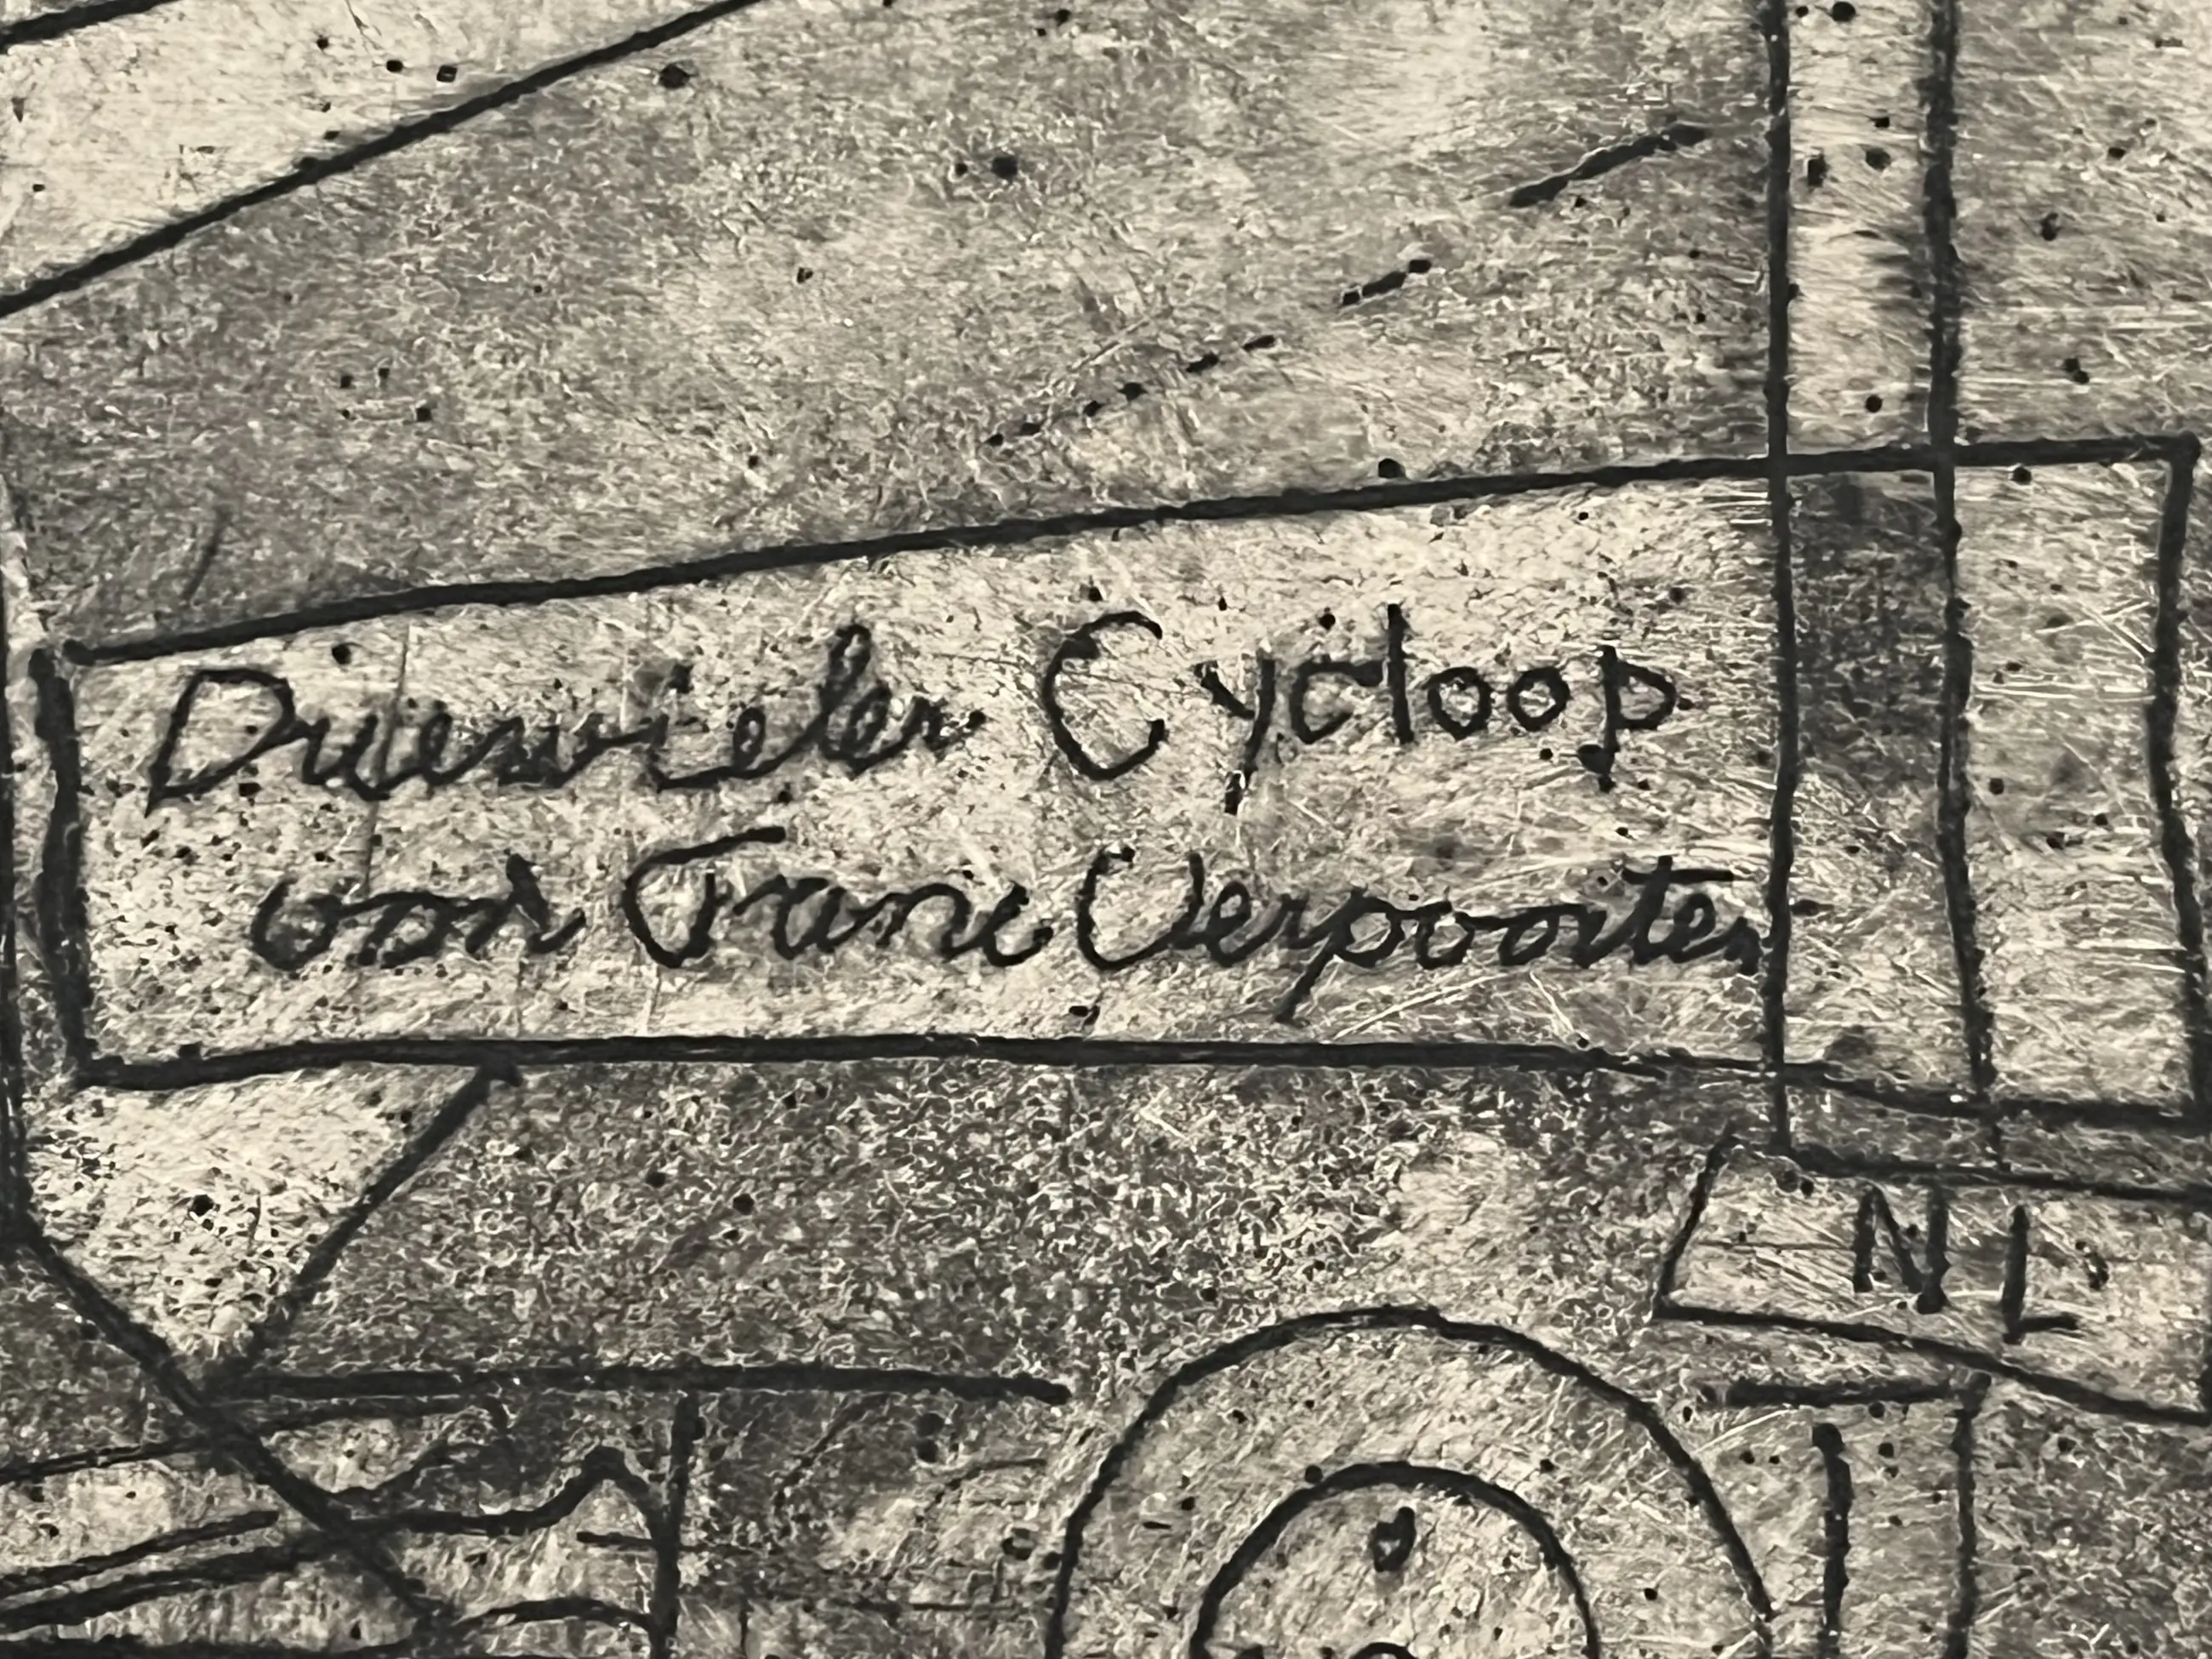 Driewieler Cycloop
voor Frans Verpoorten
NL